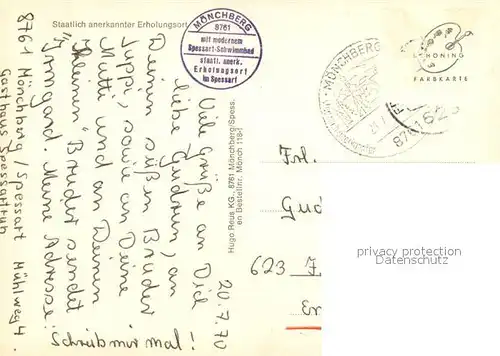 Staatlich anerkannter Erholungsort
MÖNCHBERG
8761
mit modernem
Spessart-Schwimmbad
staatl. anerk.
Erholungsort
im Spessart
MÖNCHBERG
8761
SCHÖNING
FARBKARTE
20.7.70
Viele Grüße an Dich
liebe Gudrun, an
Deinen süßen Bruder
Juppi, sowie an Deine
Mutti und an Deinen
kleinen Bruder sendet
Irmgard. Meine Adresse:
8761 Mönchberg/Spessart Mühlweg 4
Gasthaus Spessartruh
Schreib mir mal!
Hugo Reus KG., 8761 Mönchberg/Spess.
en Bestellnr. Mönch 118-1
Frl.
Gud
623
privacy protection
Datenschutz